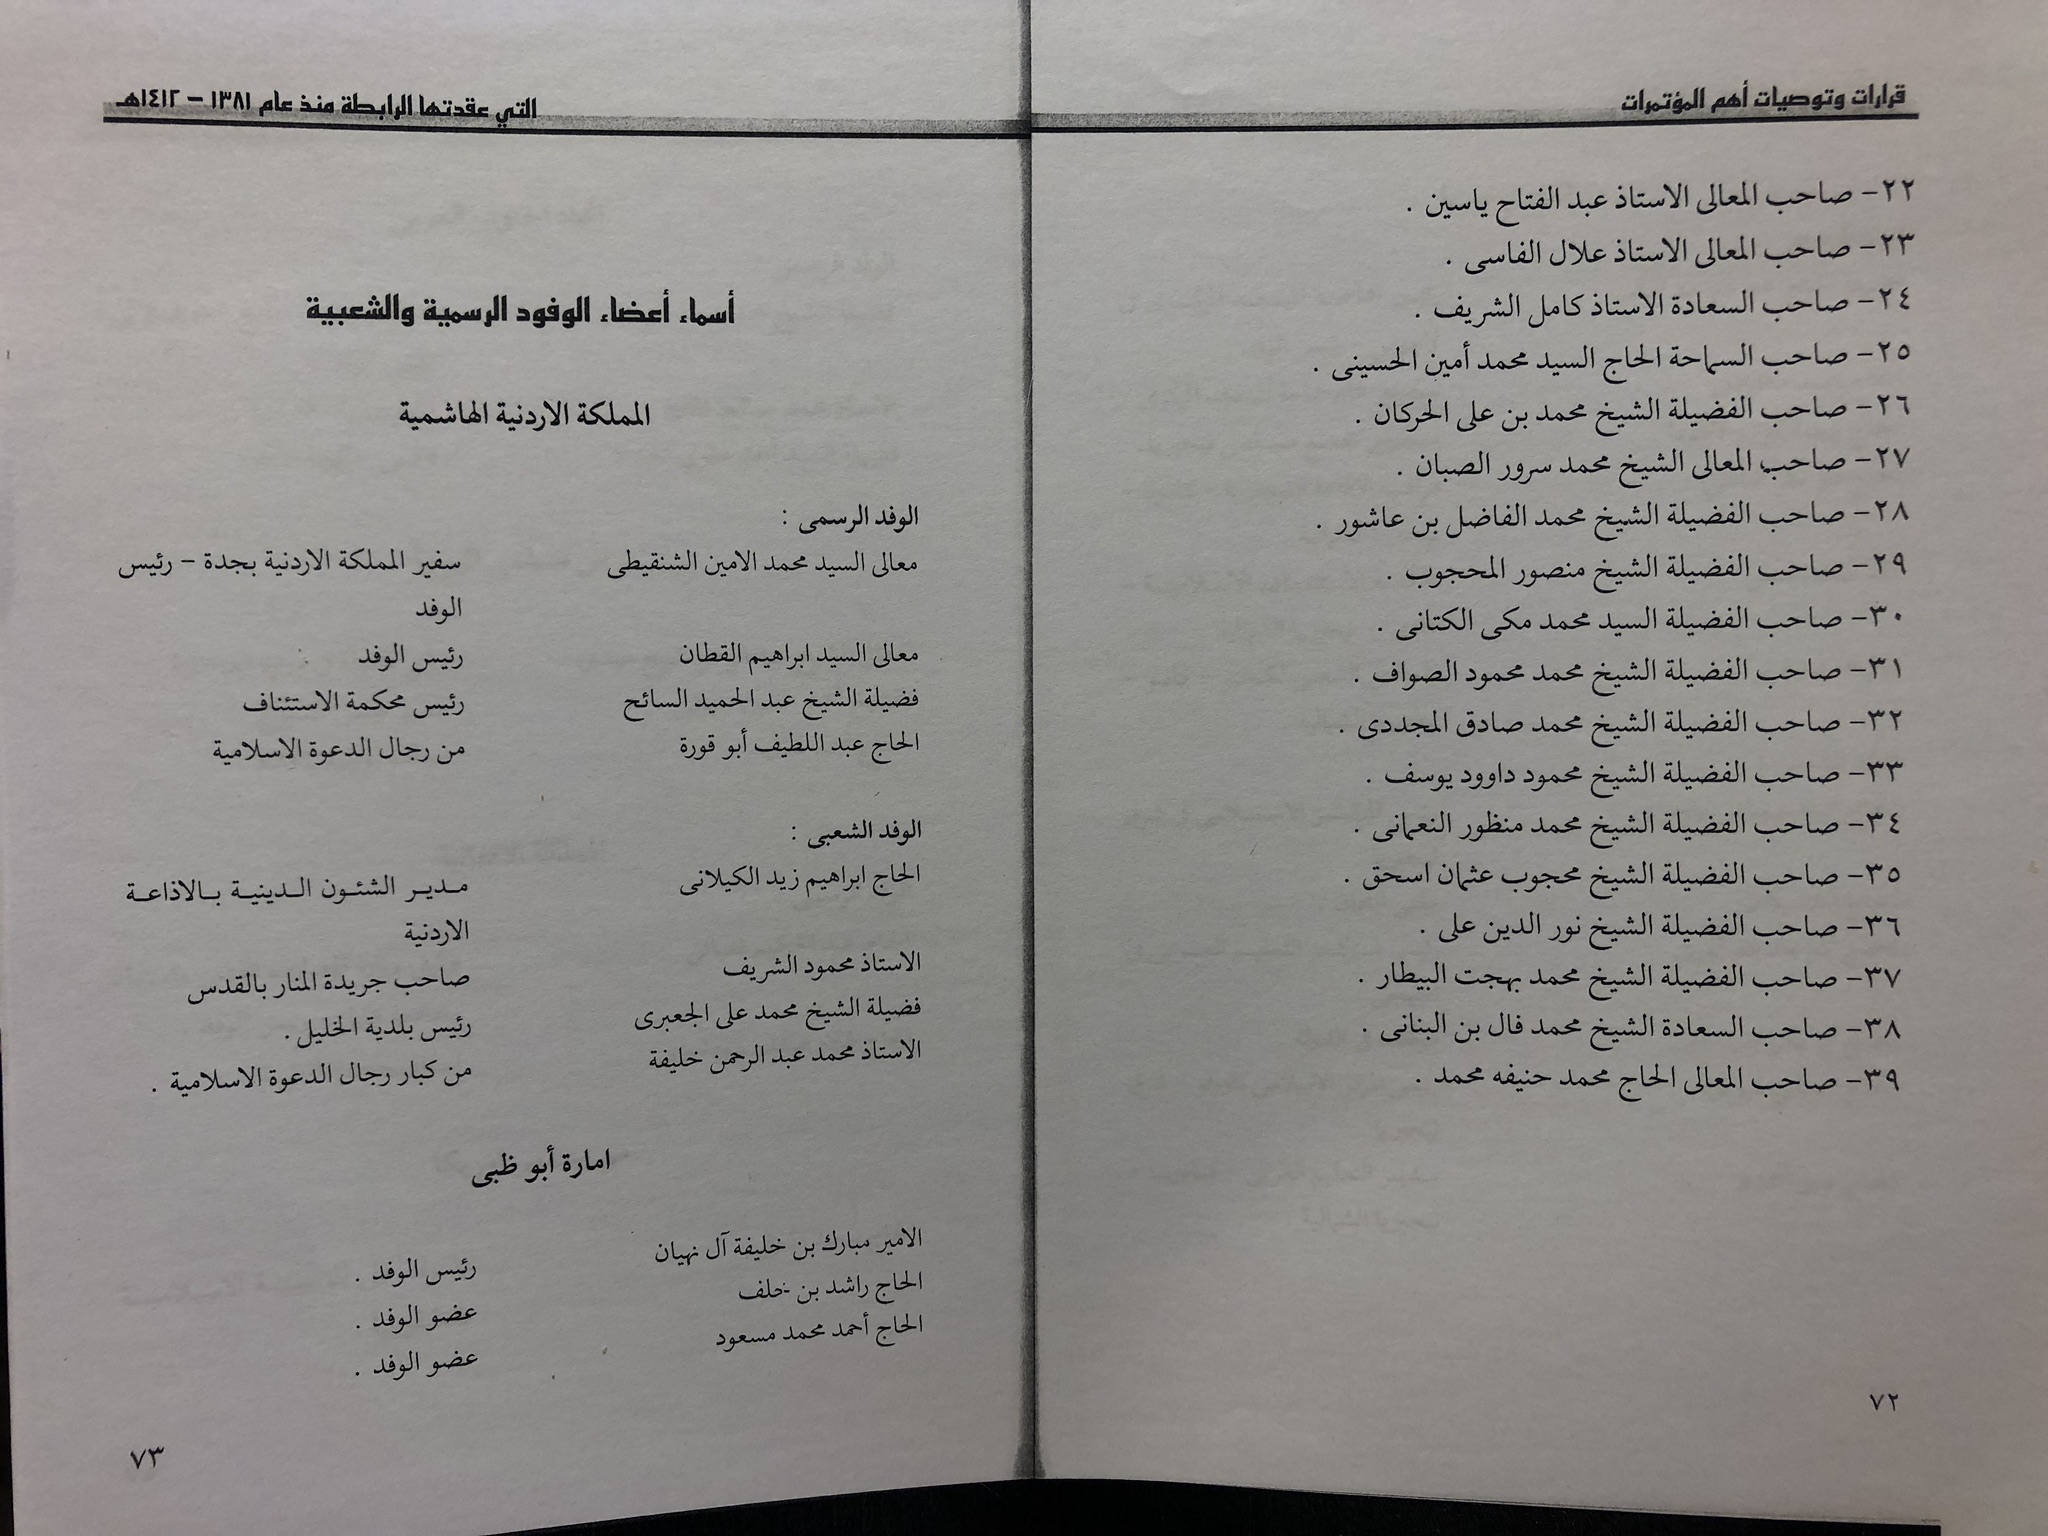 قرارات وتوصيات أهم المؤتمرات
٢٢- صاحب المعالى الاستاذ عبد الفتاح ياسين .
٢٣- صاحب المعالى الاستاذ علال الفاسى .
٢٤- صاحب السعادة الاستاذ كامل الشريف .
٢٥- صاحب السماحة الحاج السيد محمد أمين الحسينى .
٢٦- صاحب الفضيلة الشيخ محمد بن على الحركان .
٢٧- صاحب المعالى الشيخ محمد سرور الصبان .
٢٨- صاحب الفضيلة الشيخ محمد الفاضل بن عاشور .
٢٩- صاحب الفضيلة الشيخ منصور المحجوب .
٣٠- صاحب الفضيلة السيد محمد مكى الكتانى .
٣١- صاحب الفضيلة الشيخ محمد محمود الصواف .
٣٢- صاحب الفضيلة الشيخ محمد صادق المجددى .
٣٣- صاحب الفضيلة الشيخ محمود داوود يوسف .
٣٤- صاحب الفضيلة الشيخ محمد منظور النعمانى .
٣٥- صاحب الفضيلة الشيخ محجوب عثمان اسحق .
٣٦- صاحب الفضيلة الشيخ نور الدين على .
٣٧- صاحب الفضيلة الشيخ محمد بهجت البيطار .
٣٨- صاحب السعادة الشيخ محمد فال بن البنانى .
٣٩- صاحب المعالى الحاج محمد حنيفه محمد .
٧٢
التي عقدتها الرابطة منذ عام ١٣٨١ - ١٤١٢هـ
أسماء أعضاء الوفود الرسمية والشعبية
المملكة الاردنية الهاشمية
الوفد الرسمى :
معالى السيد محمد الامين الشنقيطى سفير المملكة الاردنية بجدة - رئيس
الوفد
معالى السيد ابراهيم القطان رئيس الوفد
فضيلة الشيخ عبد الحميد السائح رئيس محكمة الاستئناف
الحاج عبد اللطيف أبو قورة من رجال الدعوة الاسلامية
الوفد الشعبى :
الحاج ابراهيم زيد الكيلانى مدير الشئون الدينية بالاذاعة
الاردنية
الاستاذ محمود الشريف صاحب جريدة المنار بالقدس
فضيلة الشيخ محمد على الجعبرى رئيس بلدية الخليل .
الاستاذ محمد عبد الرحمن خليفة من كبار رجال الدعوة الاسلامية .
امارة أبو ظبى
الامير مبارك بن خليفة آل نهيان رئيس الوفد .
الحاج راشد بن خلف عضو الوفد .
الحاج أحمد محمد مسعود عضو الوفد .
٧٣